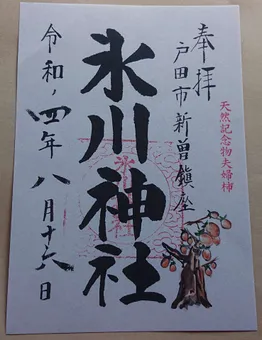 奉拝
天然記念物夫婦柿
戸田市新曽鎮座
氷川神社
令和四年八月十六日